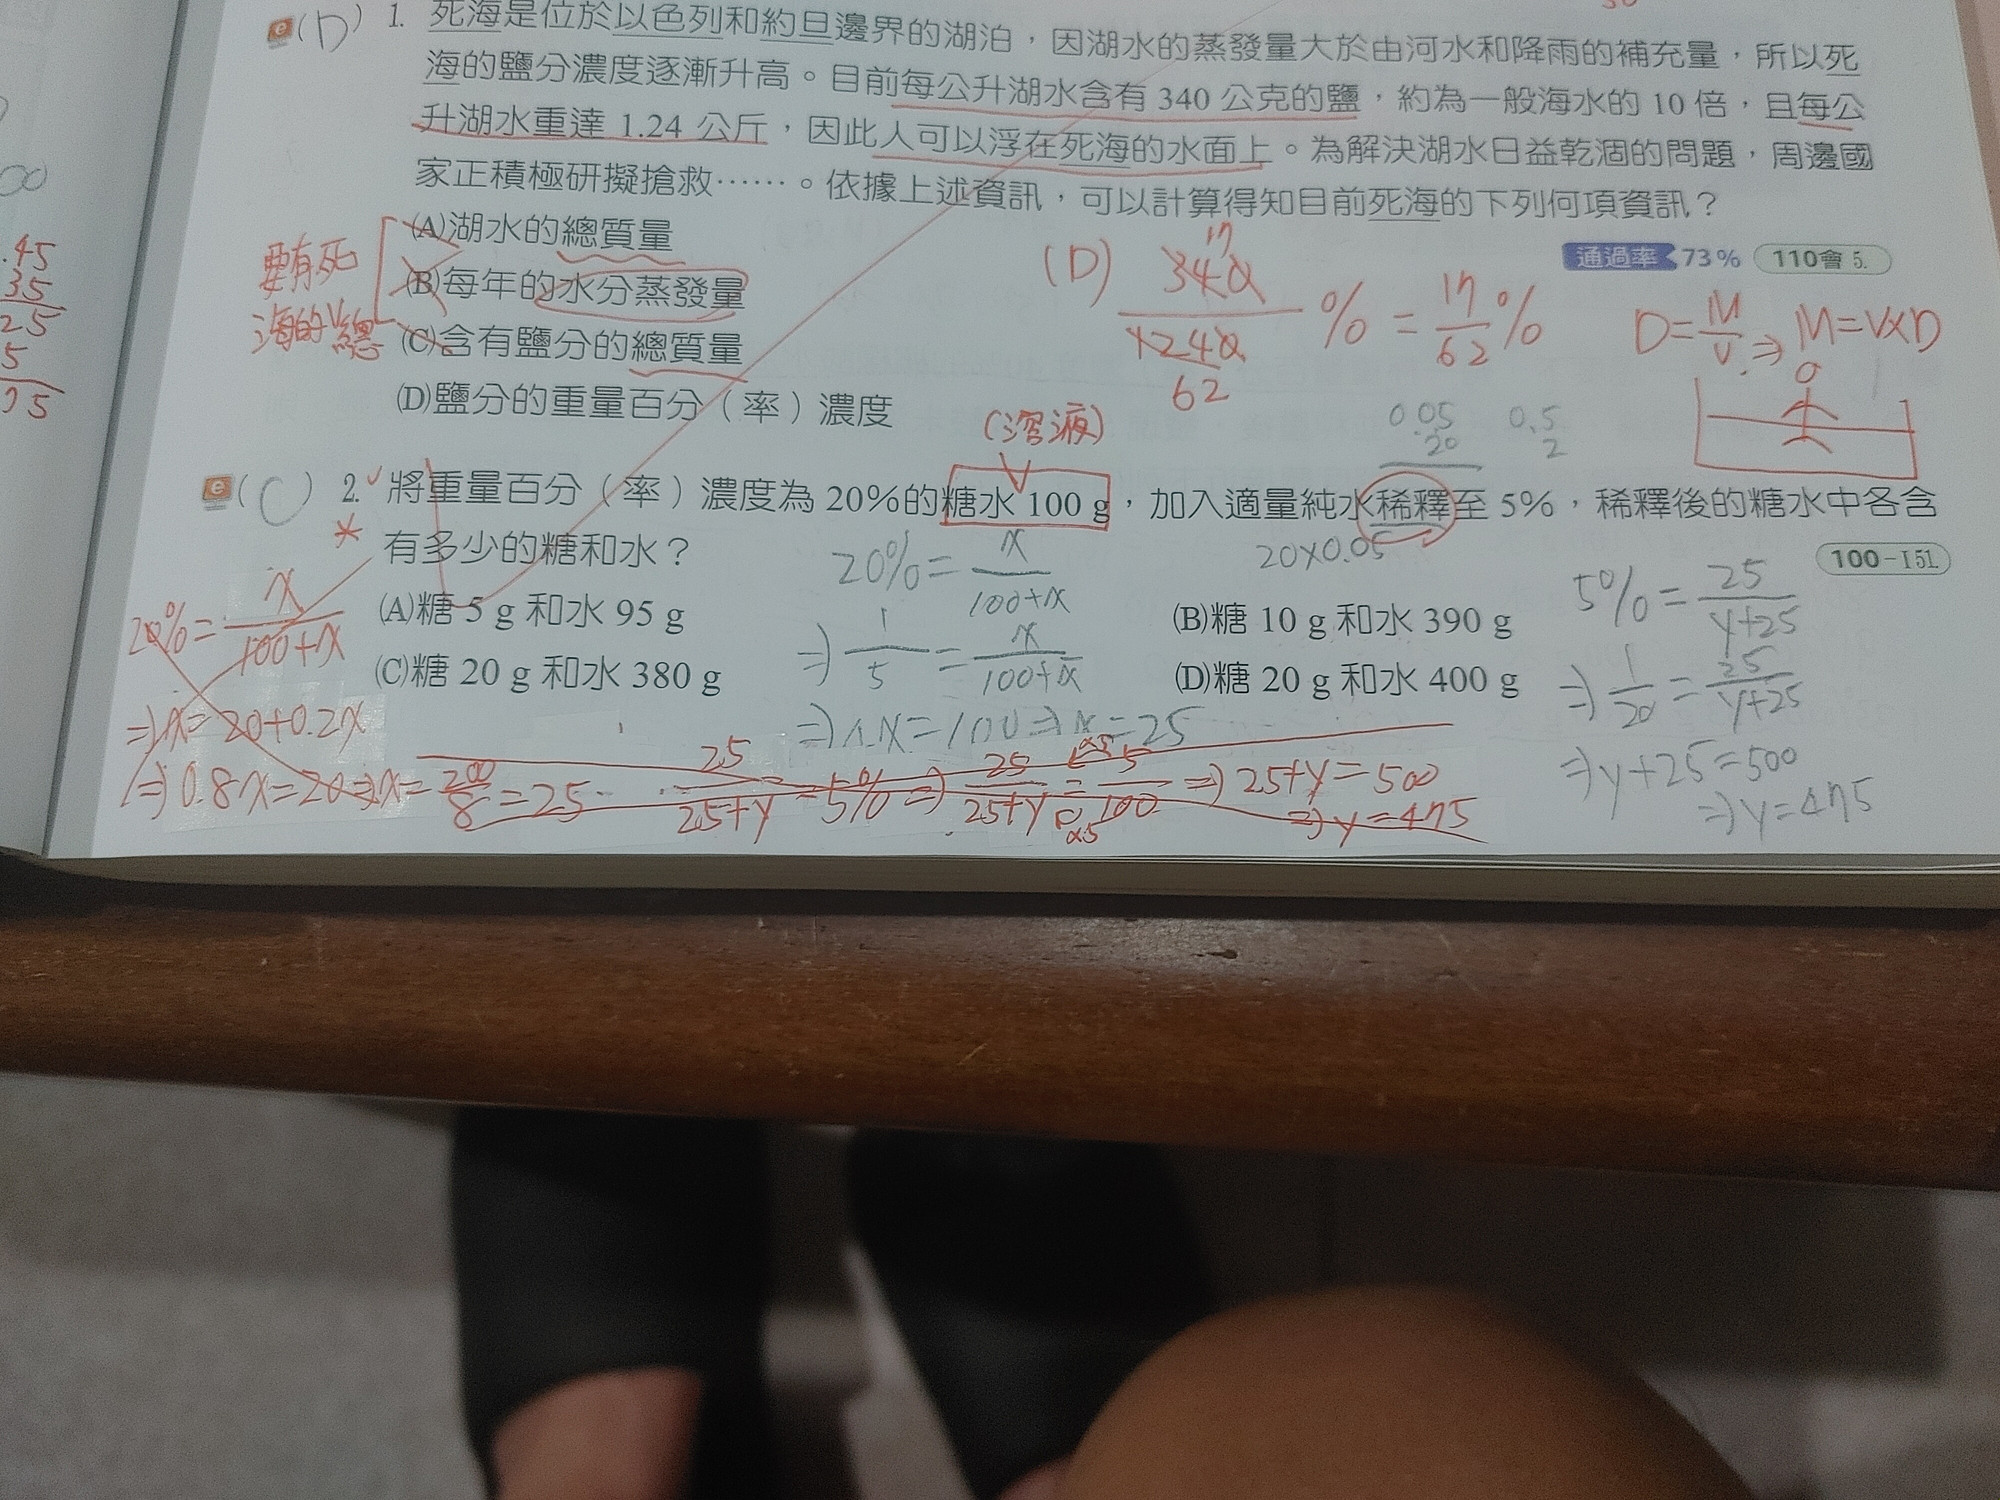 (D) 1. 死海是位於以色列和約旦邊界的湖泊，因湖水的蒸發量大於由河水和降雨的補充量，所以死
海的鹽分濃度逐漸升高。目前每公升湖水含有 340 公克的鹽，約為一般海水的 10 倍，且每公
升湖水重達 1.24 公斤，因此人可以浮在死海的水面上。為解決湖水日益乾涸的問題，周邊國
家正積極研擬搶救……。依據上述資訊，可以計算得知目前死海的下列何項資訊？
通過率 73% 110會 5.
(A)湖水的總質量
(B)每年的水分蒸發量
(C)含有鹽分的總質量
(D)鹽分的重量百分（率）濃度
要有死
海的V總
(D) 340/1240 % = 17/62 %
17
62
D=M/V ⇒ M=V×D
(溶液)
0.05
20
0.5
2
(C) 2. 將重量百分（率）濃度為 20%的糖水 100 g，加入適量純水稀釋至 5%，稀釋後的糖水中各含
有多少的糖和水？
100－I 51.
20×0.05
(A)糖 5 g 和水 95 g
(B)糖 10 g 和水 390 g
(C)糖 20 g 和水 380 g
(D)糖 20 g 和水 400 g
20%=x/100+x
⇒1/5=x/100+x
20%=x/100+x
⇒x=20+0.2x
⇒0.8x=20⇒x=200/8=25
25/25+y=5%
⇒25+y=500
⇒y=475
5%=25/y+25
⇒1/20=25/y+25
⇒y+25=500
⇒y=475
45
35
25
5